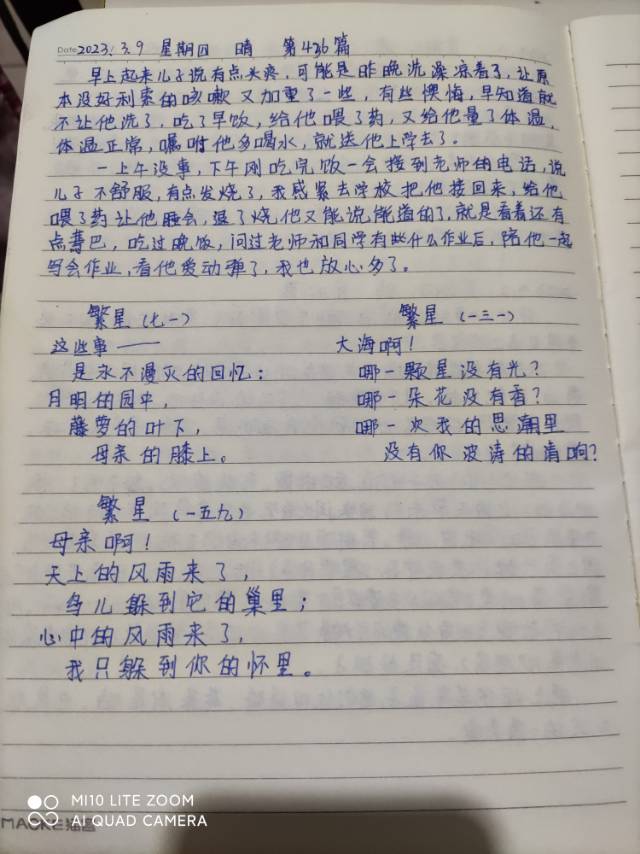 Date 2023.3.9 星期四 晴 第436篇
早上起来儿子说有点头疼，可能是昨晚洗澡凉着了，让原
本没好利索的咳嗽又加重了一些，有些懊悔，早知道就
不让他洗了，吃了早饭，给他喂了药，又给他量了体温，
体温正常，嘱咐他多喝水，就送他上学去了。
一上午没事，下午刚吃完饭一会接到老师的电话，说
儿子不舒服，有点发烧了，我感紧去学校把他接回来，给他
喂了药让他睡会，退了烧他又能说能道的了，就是看着还有
点蔫巴，吃过晚饭，问过老师和同学有些什么作业后，陪他一起
写会作业，看他爱动弹了，我也放心多了。
繁星（七一）
这些事——
是永不漫灭的回忆；
月明的园中，
藤萝的叶下，
母亲的膝上。
繁星（一三一）
大海啊！
哪一颗星没有光？
哪一朵花没有香？
哪一次我的思潮里
没有你波涛的清响？
繁星（一五九）
母亲啊！
天上的风雨来了，
鸟儿躲到它的巢里；
心中的风雨来了，
我只躲到你的怀里。
MI10 LITE ZOOM
AI QUAD CAMERA